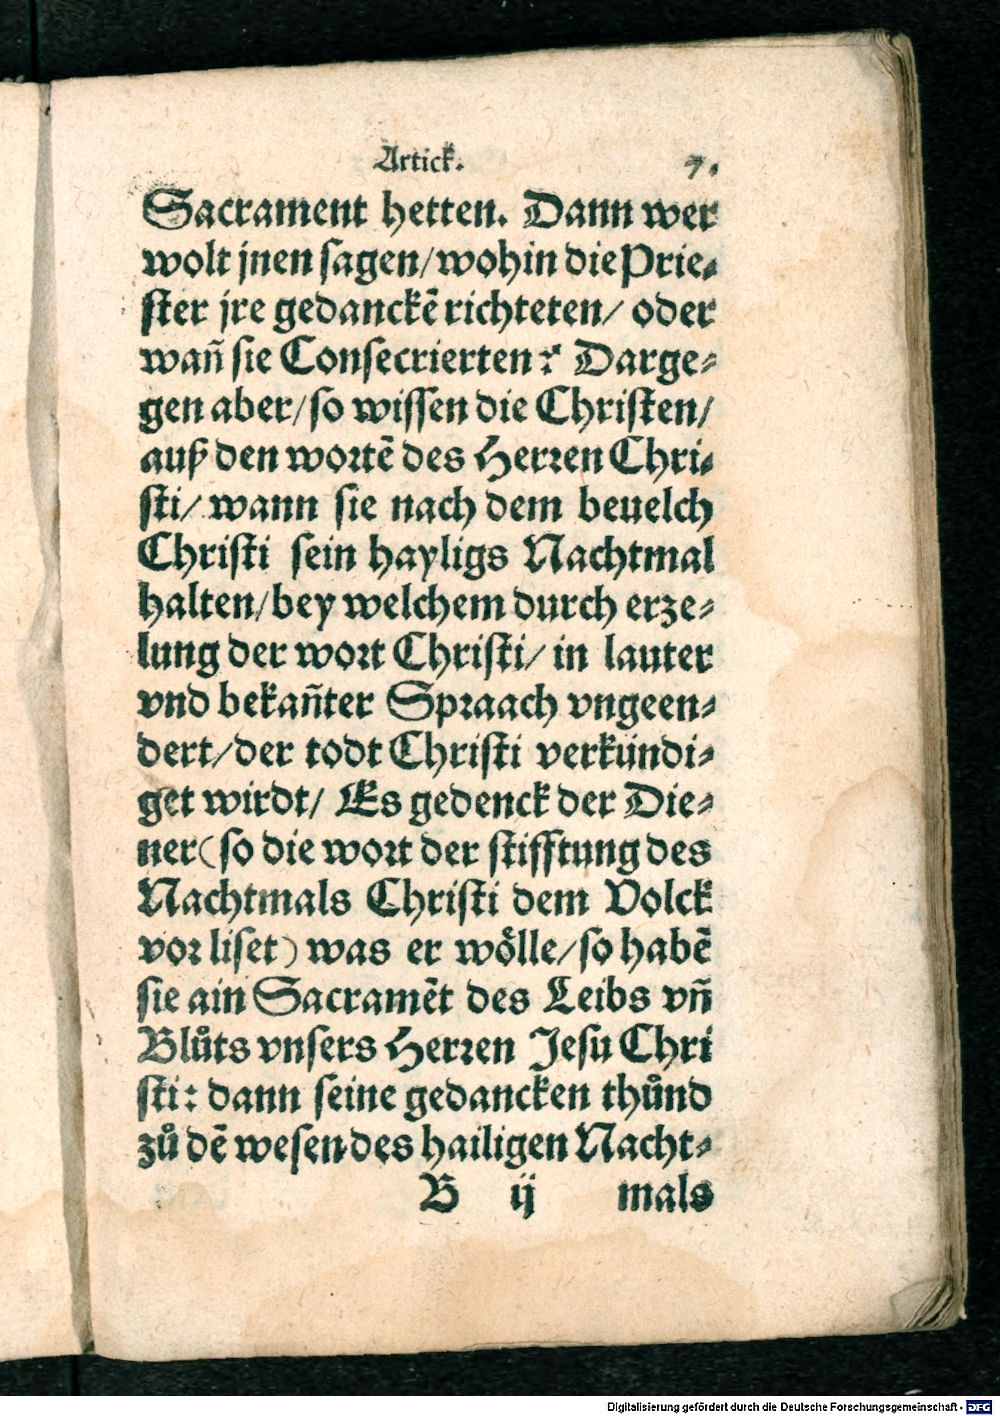 Artick. 7.
Sacrament hetten. Dann wer
wolt jnen sagen/wohin die Prie-
ster jre gedanckē richteten/ oder
wañ sie Consecrierten? Darge-
gen aber/so wissen die Christen/
auß den wortē des Herren Chri-
sti/ wann sie nach dem beuelch
Christi sein hayligs Nachtmal
halten/bey welchem durch erze-
lung der wort Christi/ in lauter
vnd bekañter Spraach vngeen-
dert/der todt Christi verkündi-
get wirdt/ Es gedenck der Die-
ner(so die wort der stifftung des
Nachtmals Christi dem Volck
vor liset) was er wölle/so habē
sie ain Sacramēt des Leibs vñ
Blůts vnsers Herren Jesu Chri
sti: dann seine gedancken thůnd
zů dē wesen des hailigen Nacht-
B ij mals
Digitalisierung gefördert durch die Deutsche Forschungsgemeinschaft - DFG